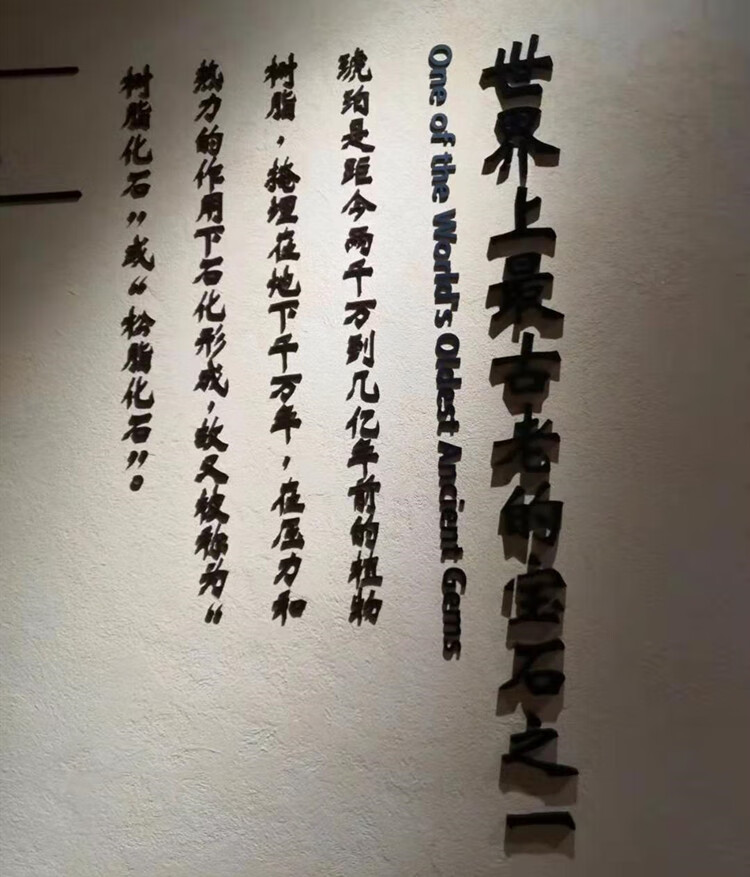 世界上最古老的宝石之一
One of the World's Oldest Ancient Gems
琥珀是距今两千万到几亿年前的植物
树脂，掩埋在地下千万年，在压力和
热力的作用下石化形成，故又被称为“
树脂化石”或“松脂化石”。